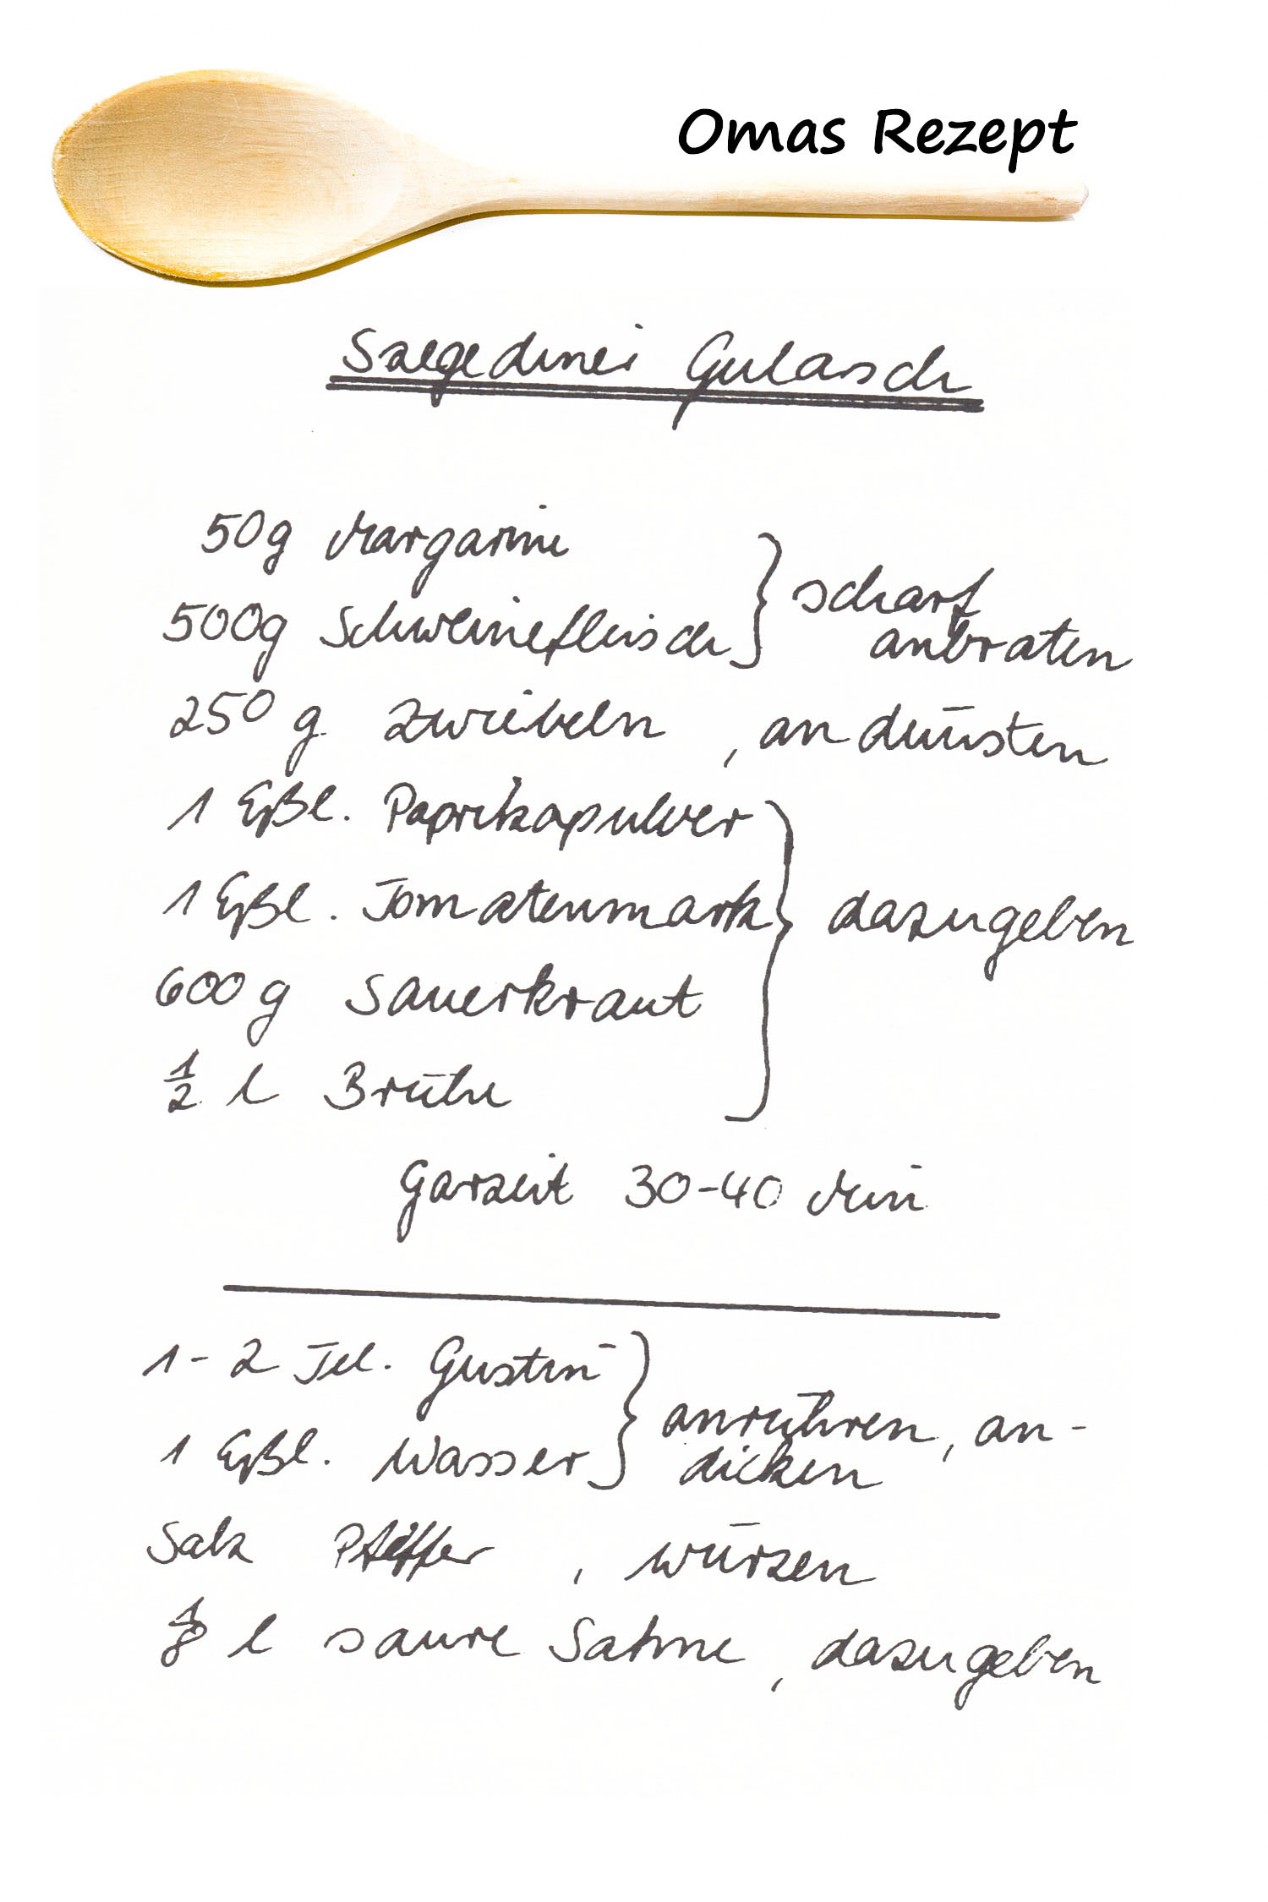 Omas Rezept
Szegediner Gulasch
50g Margarine
500g Schweinefleisch } scharf
anbraten
250 g Zwiebeln , andünsten
1 Eßl. Paprikapulver
1 Eßl. Tomatenmark } dazugeben
600 g Sauerkraut
1/2 l Brühe
Garzeit 30-40 Min
1-2 Teel. Gustin
1 Eßl. Wasser } anrühren, an-
dicken
Salz Pfeffer , würzen
1/8 l saure Sahne , dazugeben